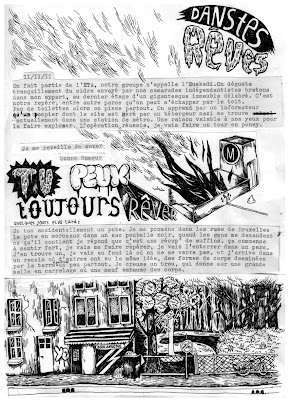 DANS TES
RÊVES
11/11/11
On fait partie de l'ETA, notre groupe s'appelle l'Euskedi. On déguste
tranquillement du cidre envoyé par nos camarades indépendantistes bretons
dans mon appart, au dernier étage d'un gigantesque immeuble délabré. C'est
notre repère, entre autre parce qu'on peut s'échapper par le toit.
de toilettes alors on pisse partout. On apprend par un
qu'un dont le site est géré par un hébergeur nazi se trouve
actuellement dans une station de métro. Une raison valable à nos yeux pour
la faire exploser. L'opération réussie, je vais faire un tour en poney.
Je me réveille de super
bonne humeur
M
TU PEUX
TOUJOURS
RÊVER
QUELQUES JOURS PLUS TARD:
Je tue accidentellement un pote. Je me promène dans les rues de bruxelles
le pote en morceaux dans un sac poubelle noir, quand les gens me demandent
ce qu'il contient je répond que c'est une récup' de muffins, ça commence
à sentir fort, je vais me faire repérer, je vais l'enterrer dans un
j'en trouve un, je vais au fond là où on ne me verra pas, et j'arrive dans
un recoin où d'autres ont eu la même idée, des formes de corps dessinées
par la terre un peu partout. Je creuse un trou, qui donne sur une grande
salle en carrelage où une meuf entasse des corps.